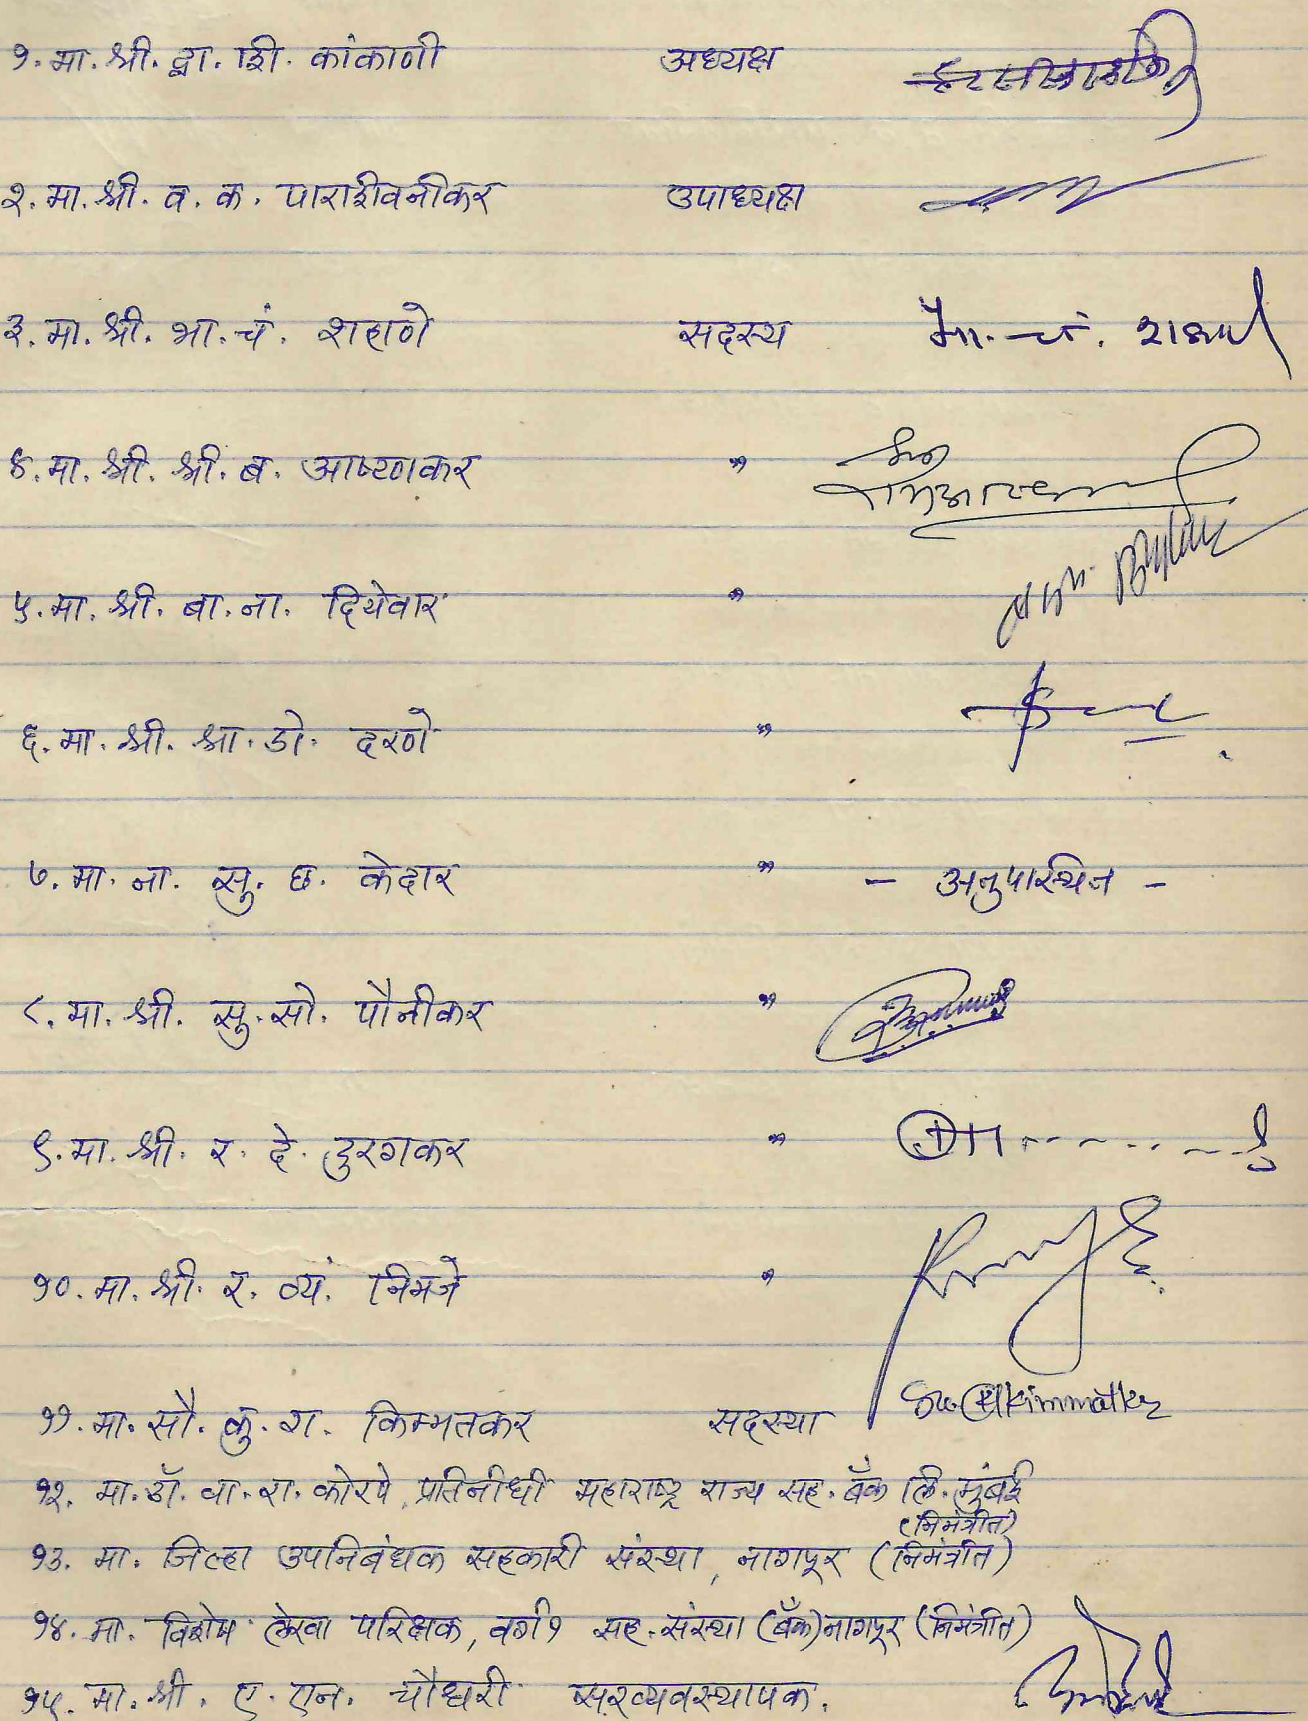 १. मा. श्री. द्वा. शि. कांकाणी अध्यक्ष
२. मा. श्री. व. क. पाराशीवनीकर उपाध्यक्ष
३. मा. श्री. भा. चं. शहाणे सदस्य भा. चं. शहाणे
४. मा. श्री. श्री. ब. आष्टणकर "
५. मा. श्री. बा. ना. दियेवार "
६. मा. श्री. श्रा. डो. दरणे "
७. मा. ना. सु. छ. केदार " - अनुपास्थित -
८. मा. श्री. सु. सो. पौनीकर "
९. मा. श्री. र. दे. दुरगकर "
१०. मा. श्री. र. व्यं. निमजे "
११. मा. सौ. कु. रा. किम्मतकर सदस्या
१२. मा. डॉ. वा. रा. कोरपे, प्रतिनीधी महाराष्ट्र राज्य सह. बँक लि. मुंबई
(निमंत्रीत)
१३. मा. जिल्हा उपनिबंधक सहकारी संस्था, नागपूर (निमंत्रीत)
१४. मा. विशेष लेखा परिक्षक, वर्ग १ सह. संस्था (बँक) नागपूर (निमंत्रीत)
१५. मा. श्री. ए. एन. चौधरी सरव्यवस्थापक.